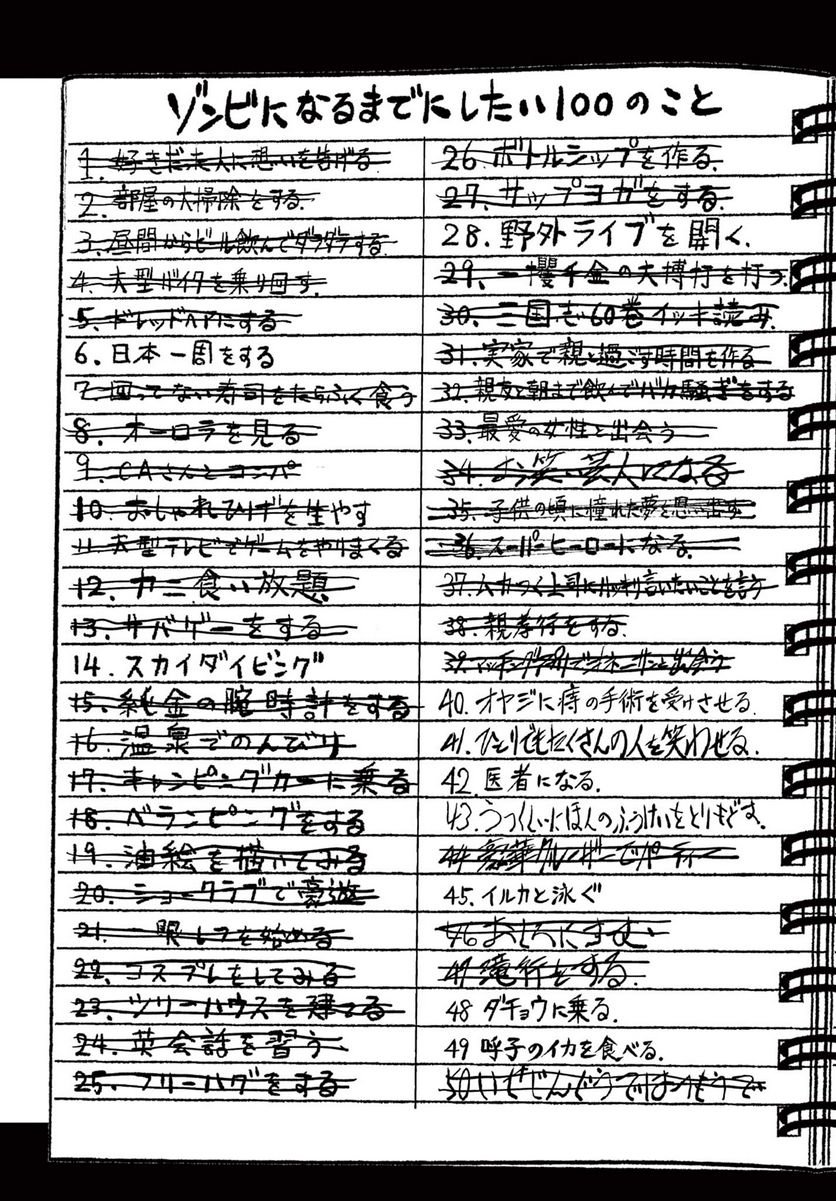 ゾンビになるまでにしたい100のこと
1. 好きだった人に想いを告げる
2. 部屋の大掃除をする.
3. 昼間からビール飲んでダラダラする
4. 大型バイクを乗り回す.
5. ドレッドヘアにする
6. 日本一周をする
7. 回ってない寿司をたらふく食う
8. オーロラを見る
9. CAさんとコンパ
10. おしゃれひげを生やす
11. 大型テレビでゲームをやりまくる
12. カニ食い放題
13. サバゲーをする
14. スカイダイビング
15. 純金の腕時計をする
16. 温泉でのんびり
17. キャンピングカーに乗る
18. ベランピングをする
19. 油絵を描いてみる
20. ショークラブで豪遊
21. 一眼レフを始める
22. コスプレをしてみる
23. ツリーハウスを建てる
24. 英会話を習う
25. フリーハグをする
26. ボトルシップを作る.
27. サップヨガをする.
28. 野外ライブを開く.
29. 一攫千金の大博打を打つ
30. 三国志60巻イッキ読み
31. 実家で親と過ごす時間を作る
32. 親友と朝まで飲んでバカ騒ぎをする
33. 最愛の女性と出会う
34. お笑い芸人になる
35. 子供の頃に憧れた夢を思い出す
36. スーパーヒーローになる.
37. ムカつく上司にハッキリ言いたいことを言う
38. 親孝行をする.
39. マッチングアプリでオネーサンと出会う
40. オヤジに痔の手術を受けさせる.
41. ひとりでもたくさんの人を笑わせる.
42. 医者になる.
43. うつくしいにほんのふうけいをとりもどす.
44. 豪華クルーザーでパーティー
45. イルカと泳ぐ
46
47. 滝行をする.
48 ダチョウに乗る.
49 呼子のイカを食べる.
50